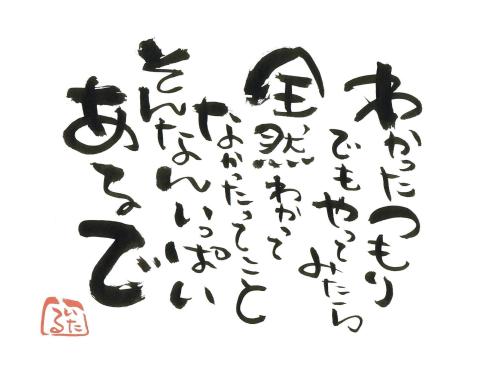 わかったつもり
でもやってみたら
全然わかって
なかったってこと
そんなんいっぱい
あるで
いたる